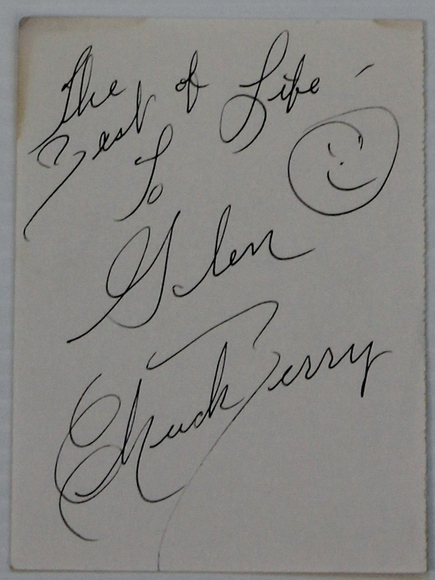 The
Best of Life -
To
Glen
Chuck Berry